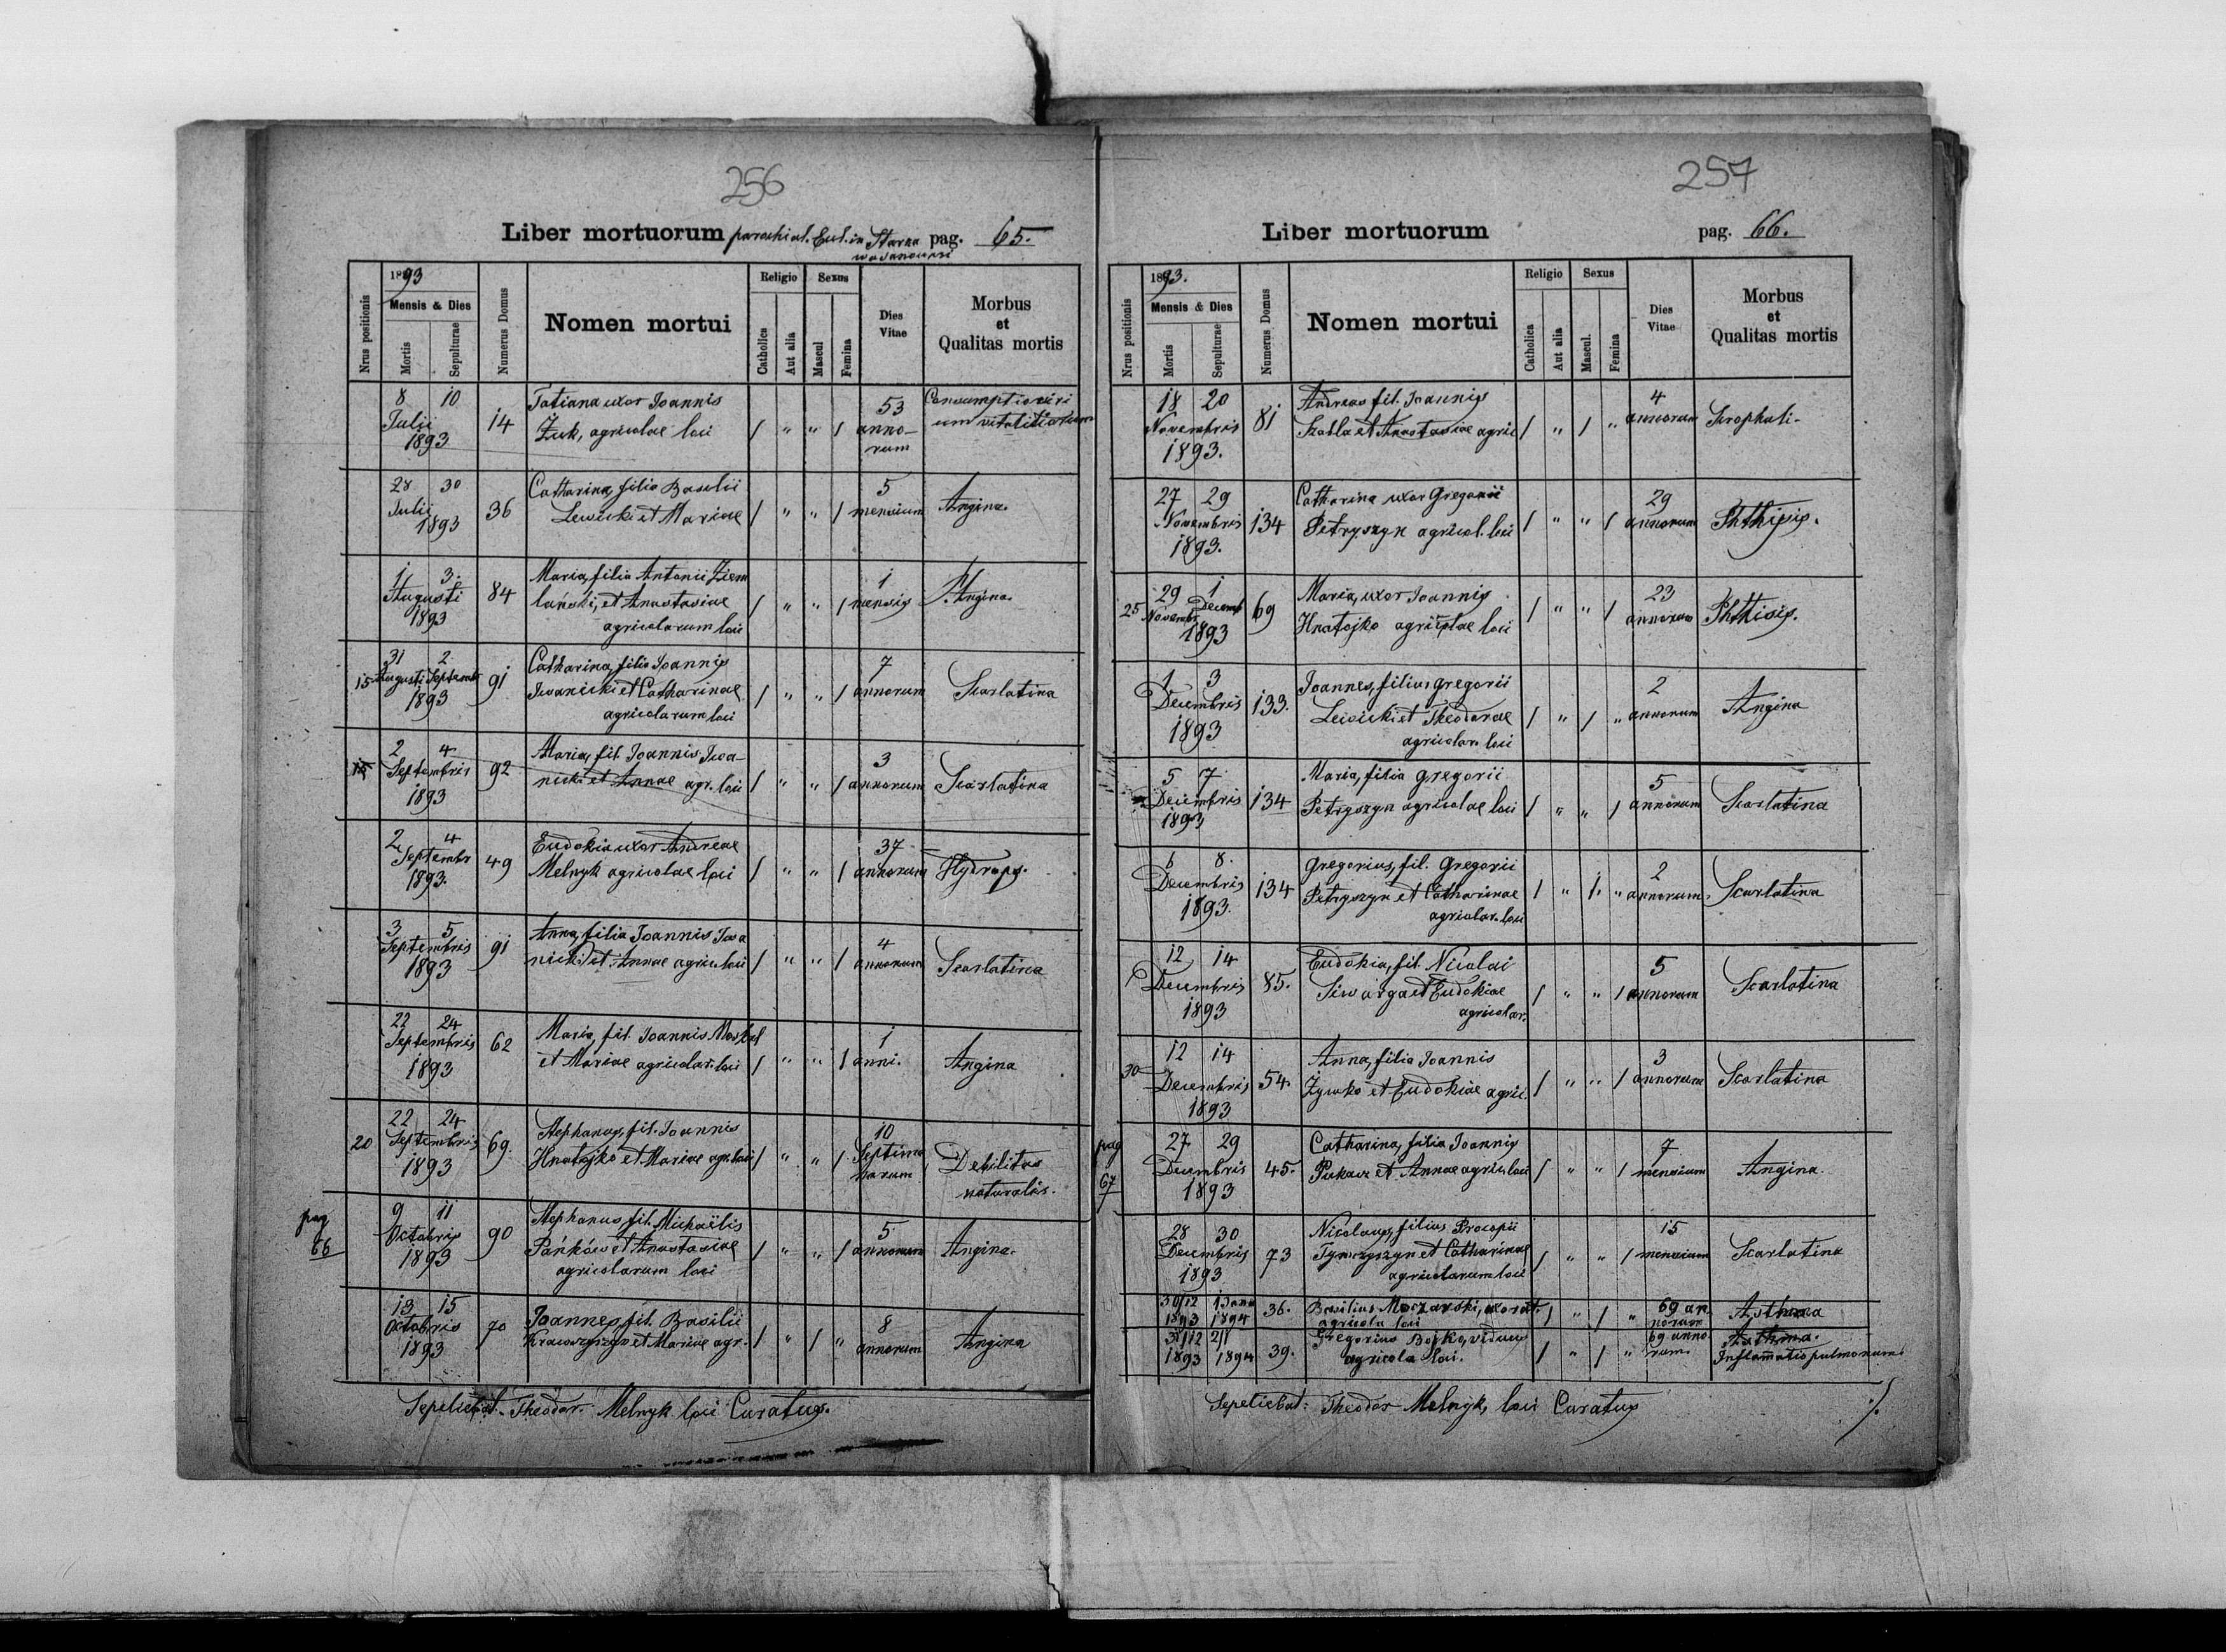 256
Liber mortuorum parochial. Eccl. in Starza pag. 65.
wa
1893
Nrus positionis
Mensis & Dies
Mortis
Sepulturae
Numerus Domus
Nomen mortui
Religio
Catholica
Aut alia
Sexus
Mascul
Femina
Dies
Vitae
Morbus
et
Qualitas mortis
8 10
Julii
1893
14
Tatiana uxor Joannis
Żuk, agricolae loci
1 " " 1
53
anno-
rum
Consumptio viri
um vitalitiarum
28 30
Julii
1893
36
Catharina, filia Basilii
Lewicki et Mariae
1 " " 1
5
mensium
Angina.
1 3.
Augusti
1893
84
Maria, filia Antonii Ziem
lański, et Anastasiae
agricolarum loci
1 " " 1
1
mensis
Angina.
15
31 2
Augusti Septembr
1893
91
Catharina, filia Joannis
Iwanicki et Catharinae
agricolarum loci
1 " " 1
7
annorum
Scarlatina
2 4
Septembris
1893
92
Maria, fil. Joannis Iwa-
nicki et Annae agr. loci
1 " " 1
3
annorum
Scarlatina
2 4
Septembr
1893.
49
Eudokia uxor Andreae
Melnyk agricolae loci
1 " " 1
37
annorum
Hydrops.
3 5
Septembris
1893
91
Anna, filia Joannis Iwa
nicki et Annae agric. loci
1 " " 1
4
annorum
Scarlatina
22 24
Septembris
1893
62
Maria, fil. Joannis Moskal
et Mariae agricolar. loci
1 " " 1
1
anni.
Angina
20
22 24
Septembris
1893
69.
Stephanus, fil. Joannis
Hnatojko et Mariae agr. loci
1 " " 1
10
Septima
narum
Debilitas
naturalis.
pag
66
9 11
Octobris
1893
90
Stephanus fil. Michaëlis
Pańków et Anastasiae
agricolarum loci
1 " " 1
5
annorum
Angina.
13 15
Octobris
1893
70
Joannes, fil. Basilii
et Mariae agr.
1 " 1 "
8
annorum
Angina
Sepeliebat: Theodor. Melnyk loci Curatus.
257
Liber mortuorum pag. 66.
1893.
Nrus positionis
Mensis & Dies
Mortis
Sepulturae
Numerus Domus
Nomen mortui
Religio
Catholica
Aut alia
Sexus
Mascul.
Femina
Dies
Vitae
Morbus
et
Qualitas mortis
18 20
Novembris
1893.
81
Andreas fil. Joannis
Szabla et Anastasiae agric
1 " 1 "
4
annorum
Scrophuli-
27 29
Novembris
1893.
134
Catharina uxor Gregorii
Petryszyn agricol. loci
1 " " 1
29
annorum
Phthisis.
25
29 1
Novembr. Decemb
1893
69
Maria, uxor Joannis
Hnatojko agricolae loci
1 " " 1
23
annorum
Phthisis.
1 3
Decembris
1893
133.
Joannes, filius Gregorii
Lewicki et Theodorae
agricolar. loci
1 " 1 "
2
annorum
Angina
5 7
Decembris
1893
134
Maria, filia Gregorii
Petryszyn agricolae loci
1 " " 1
5
annorum
Scarlatina
6 8.
Decembris
1893.
134
Gregorius, fil. Gregorii
Petryszyn et Catharinae
agricolar. loci
1 " 1. "
2
annorum.
Scarlatina
12 14
Decembris
1893
85.
Eudokia, fil. Nicolai
Siwarga et Eudokiae
agricolar.
1 " " 1
5
annorum
Scarlatina
30
12 14
Decembris
1893
54.
Anna, filia Joannis
Żywko et Eudokiae agric.
1 " " 1
3
annorum
Scarlatina
pag
67
27 29
Decembris
1893
45.
Catharina, filia Joannis
Pukacz et Annae agric. loci
1 " " 1
7
mensium
Angina.
28 30
Decembris
1893
73
Nicolaus, filius Procopii
Tymczyszyn et Catharinae
agricolarum loci
1 " " 1
15
mensium
Scarlatina
30/12 1 Janu
1893 1894
36.
Basilius uxorat.
agricola loci
1 " 1 "
69 an
norum
Asthma
31/12 2/1
1893 1894
39.
Gregorius Bojko, viduus
agricola loci.
1 " 1 "
69 anno
rum.
Asthma.
Inflammatio pulmonum.
Sepeliebat: Theodor Melnyk, loci Curatus